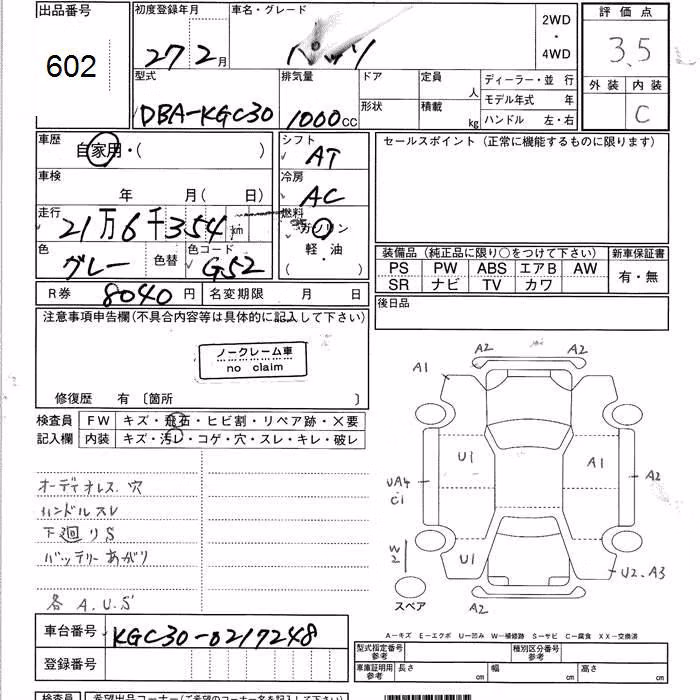 出品番号
602
初度登録年月
27 2月
車名・グレード
パッソ
2WD
・
4WD
評価点
3.5
外装 内装
C
型式
DBA-KGC30
排気量
1000cc
ドア
形状
定員 人
積載 kg
ディーラー・並行
モデル年式 年
ハンドル 左・右
車歴
自家用・( )
シフト
AT
車検
年 月( 日)
冷房
AC
走行
21万6千354km
燃料
ガソリン
軽・油
( )
色
グレー
色替
色コード
G52
R券 8040円
名変期限 月 日
セールスポイント(正常に機能するものに限ります)
装備品(純正品に限り○をつけて下さい)
PS PW ABS エアB AW
SR ナビ TV カワ
新車保証書
有・無
後日品
注意事項申告欄(不具合内容等は具体的に記入して下さい)
ノークレーム車
no claim
修復歴 有〔箇所 〕
検査員 FW キズ・飛石・ヒビ割・リペア跡・X要
記入欄 内装 キズ・汚レ・コゲ・穴・スレ・キレ・破レ
オーディオレス.穴
ハンドルスレ
下廻りS
バッテリーあがり
各A.U.S
A1
A2
A2
U1
A1
UA4
C1
A2
W2
U1
U2.A3
A2
スペア
A-キズ E-エクボ U-凹み W-補修跡 S-サビ C-腐食 XX-交換済
車台番号
KGC30-0217248
登録番号
型式指定番号
参考
種別区分番号
参考
車庫証明用
参考
長さ cm 幅 cm 高さ cm
検査員
希望出品コーナー(ご希望のコーナー名を記入して下さい)